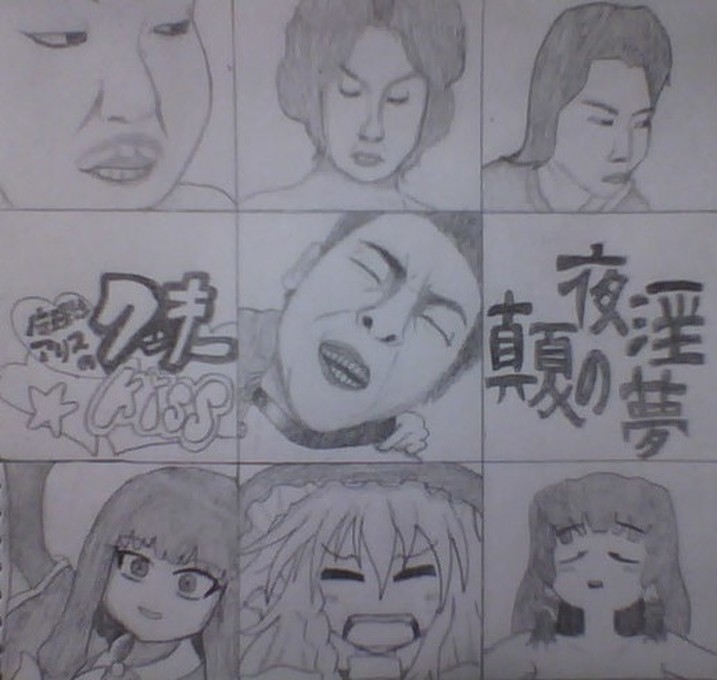 アリスの
クッキー
Kiss
真夏の
夜
淫夢